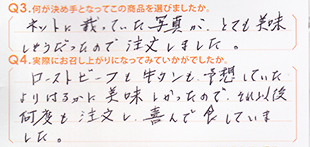 Q3.何が決め手となってこの商品を選びましたか。
ネットに載っていた写真が、とても美味
しそうだったので注文しました。
Q4.実際にお召し上がりになってみていかがでしたか。
ローストビーフも牛タンも、予想していた
よりはるかに美味しかったので、それ以後
何度も注文し、喜んで食していま
した。